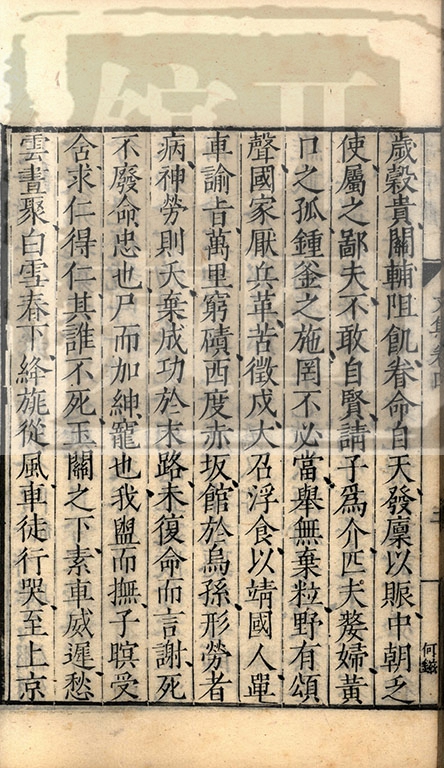 歲穀貴關輔阻飢眷命自天發廩以賑中朝乏
使屬之鄙夫不敢自賢請子爲介匹夫嫠婦黃
口之孤鍾釜之施罔不必當舉無棄粒野有頌
聲國家厭兵革苦徵戍大召浮食以靖國人單
車諭旨萬里窮磧西度赤坂館於烏孫形勞者
病神勞則夭棄成功於末路未復命而言謝死
不廢命忠也尸而加紳寵也我盥而撫子暝受
含求仁得仁其誰不死玉關之下素車威遲愁
雲晝聚白雪春下絳旐從風車徒行哭至上京
何鎡